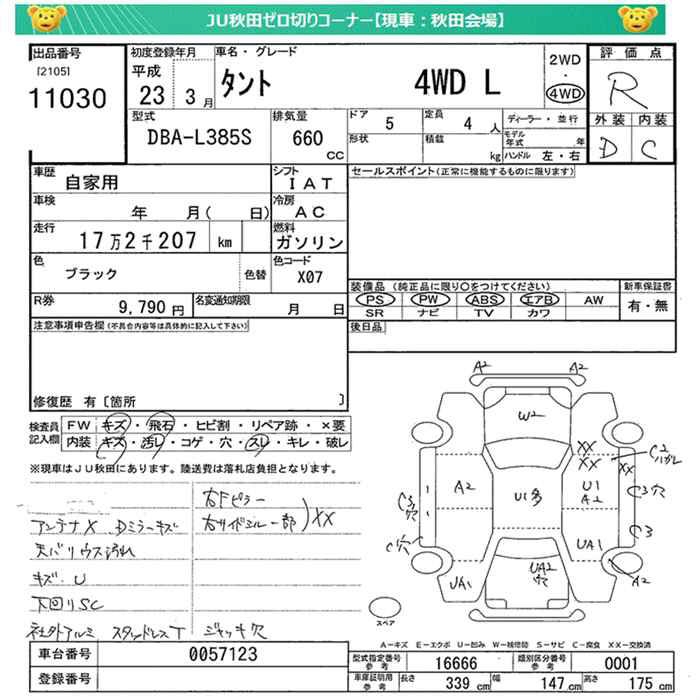 JU秋田ゼロ切りコーナー【現車：秋田会場】
出品番号
[2105]
11030
初度登録年月
平成
23 3月
車名・グレード
タント 4WD L
2WD
・
4WD
評価点
R
外装 内装
D C
型式
DBA-L385S
排気量
660
CC
ドア 5
定員 4 人
形状
積載 kg
ディーラー・並行
モデル年式 年
ハンドル 左・右
車歴 自家用
シフト IAT
車検 年 月( 日)
冷房 AC
走行 17万2千207 km
燃料 ガソリン
色 ブラック
色替
色コード X07
R券 9,790 円
名変通知期限 月 日
セールスポイント(正常に機能するものに限ります)
装備品(純正品に限り○をつけてください)
PS PW ABS エアB AW
SR ナビ TV カワ
新車保証書
有・無
後日品
注意事項申告欄(不具合内容等は具体的に記入して下さい)
修復歴 有〔箇所 〕
検査員記入欄
FW キズ・飛石・ヒビ割・リペア跡・×要
内装 キズ・汚レ・コゲ・穴・スレ・キレ・破レ
※現車はJU秋田にあります。陸送費は落札店負担となります。
右Fピラー
右サイドシル一部 )XX
アンテナX Dミラーキズ
天バリ ウス汚れ
キズ・U
下回りSC
社外アルミ スタッドレスT ジャッキ穴
A2
A2
W2
XX
XX
C2
ハガレ
XX
A2
U1多
U1
A2
C3
穴
C3穴
C穴
C3
UA1
UA1
UA2
穴
A2
スペア
A-キズ E-エクボ U-凹み W-補修箇 S-サビ C-腐食 XX-交換済
車台番号 0057123
登録番号
型式指定番号 参考 16666
類別区分番号 参考 0001
車庫証明用 参考 長さ 339 cm 幅 147 cm 高さ 175 cm